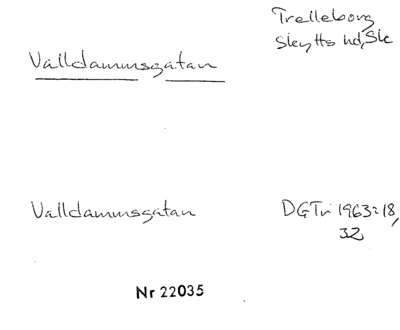 Trelleborg
Skytts hd, Sk
Valldammsgatan
Valldammsgatan
DGTr 1963:18,
32
Nr 22035